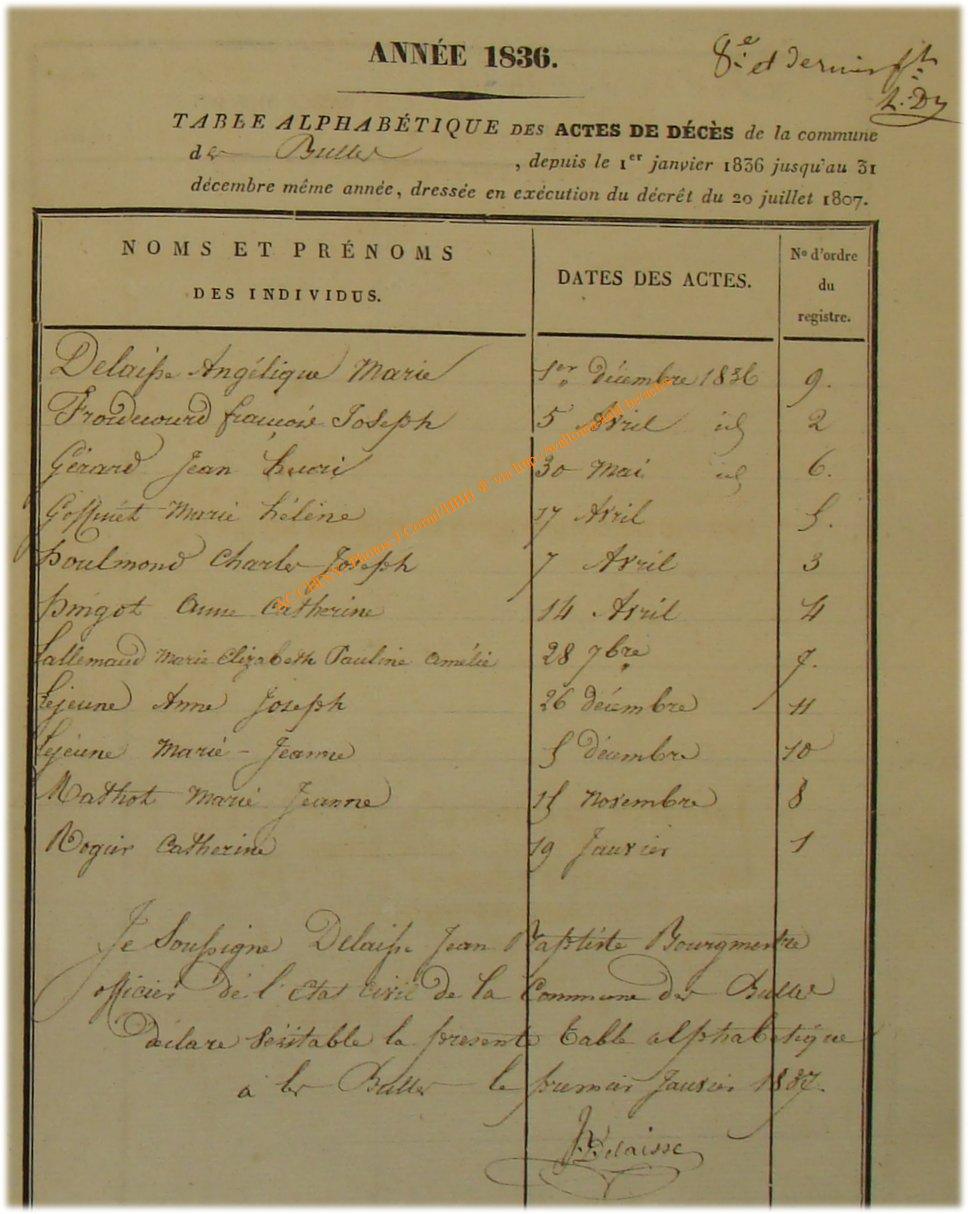 ANNÉE 1836.
8e et dernier
TABLE ALPHABÉTIQUE DES ACTES DE DÉCÈS de la commune
de Bulles, depuis le 1er janvier 1836 jusqu'au 31
décembre même année, dressée en exécution du décrêt du 20 juillet 1807.
NOMS ET PRÉNOMS DATES DES ACTES. No d'ordre
DES INDIVIDUS. du
registre.
Delaisse Angélique Marie 1er décembre 1836 9.
Froidcourd françois Joseph 5 Avril id 2
Gérard Jean henri 30 Mai id 6.
Goffinet Marie héléne 17 Avril 5.
houlmond Charles Joseph 7 Avril 3
pingot Anne Catherine 14 Avril 4
Lallemand Marie Elizabeth Pauline Amélie 28 7bre 7.
Lejeune Anne Joseph 26 décembre 11
Lejeune Marie-Jeanne 5 décembre 10
Mathot Marie Jeanne 15 Novembre 8
Rogier Catherine 19 Janvier 1
Je Soussigne Delaisse Jean Baptiste Bourgmestre
officier de l'etat civil de la Commune des Bulles
déclare véritable la presente table alphabetique
à les Bulles le premier Janvier 1837.
JBDelaisse